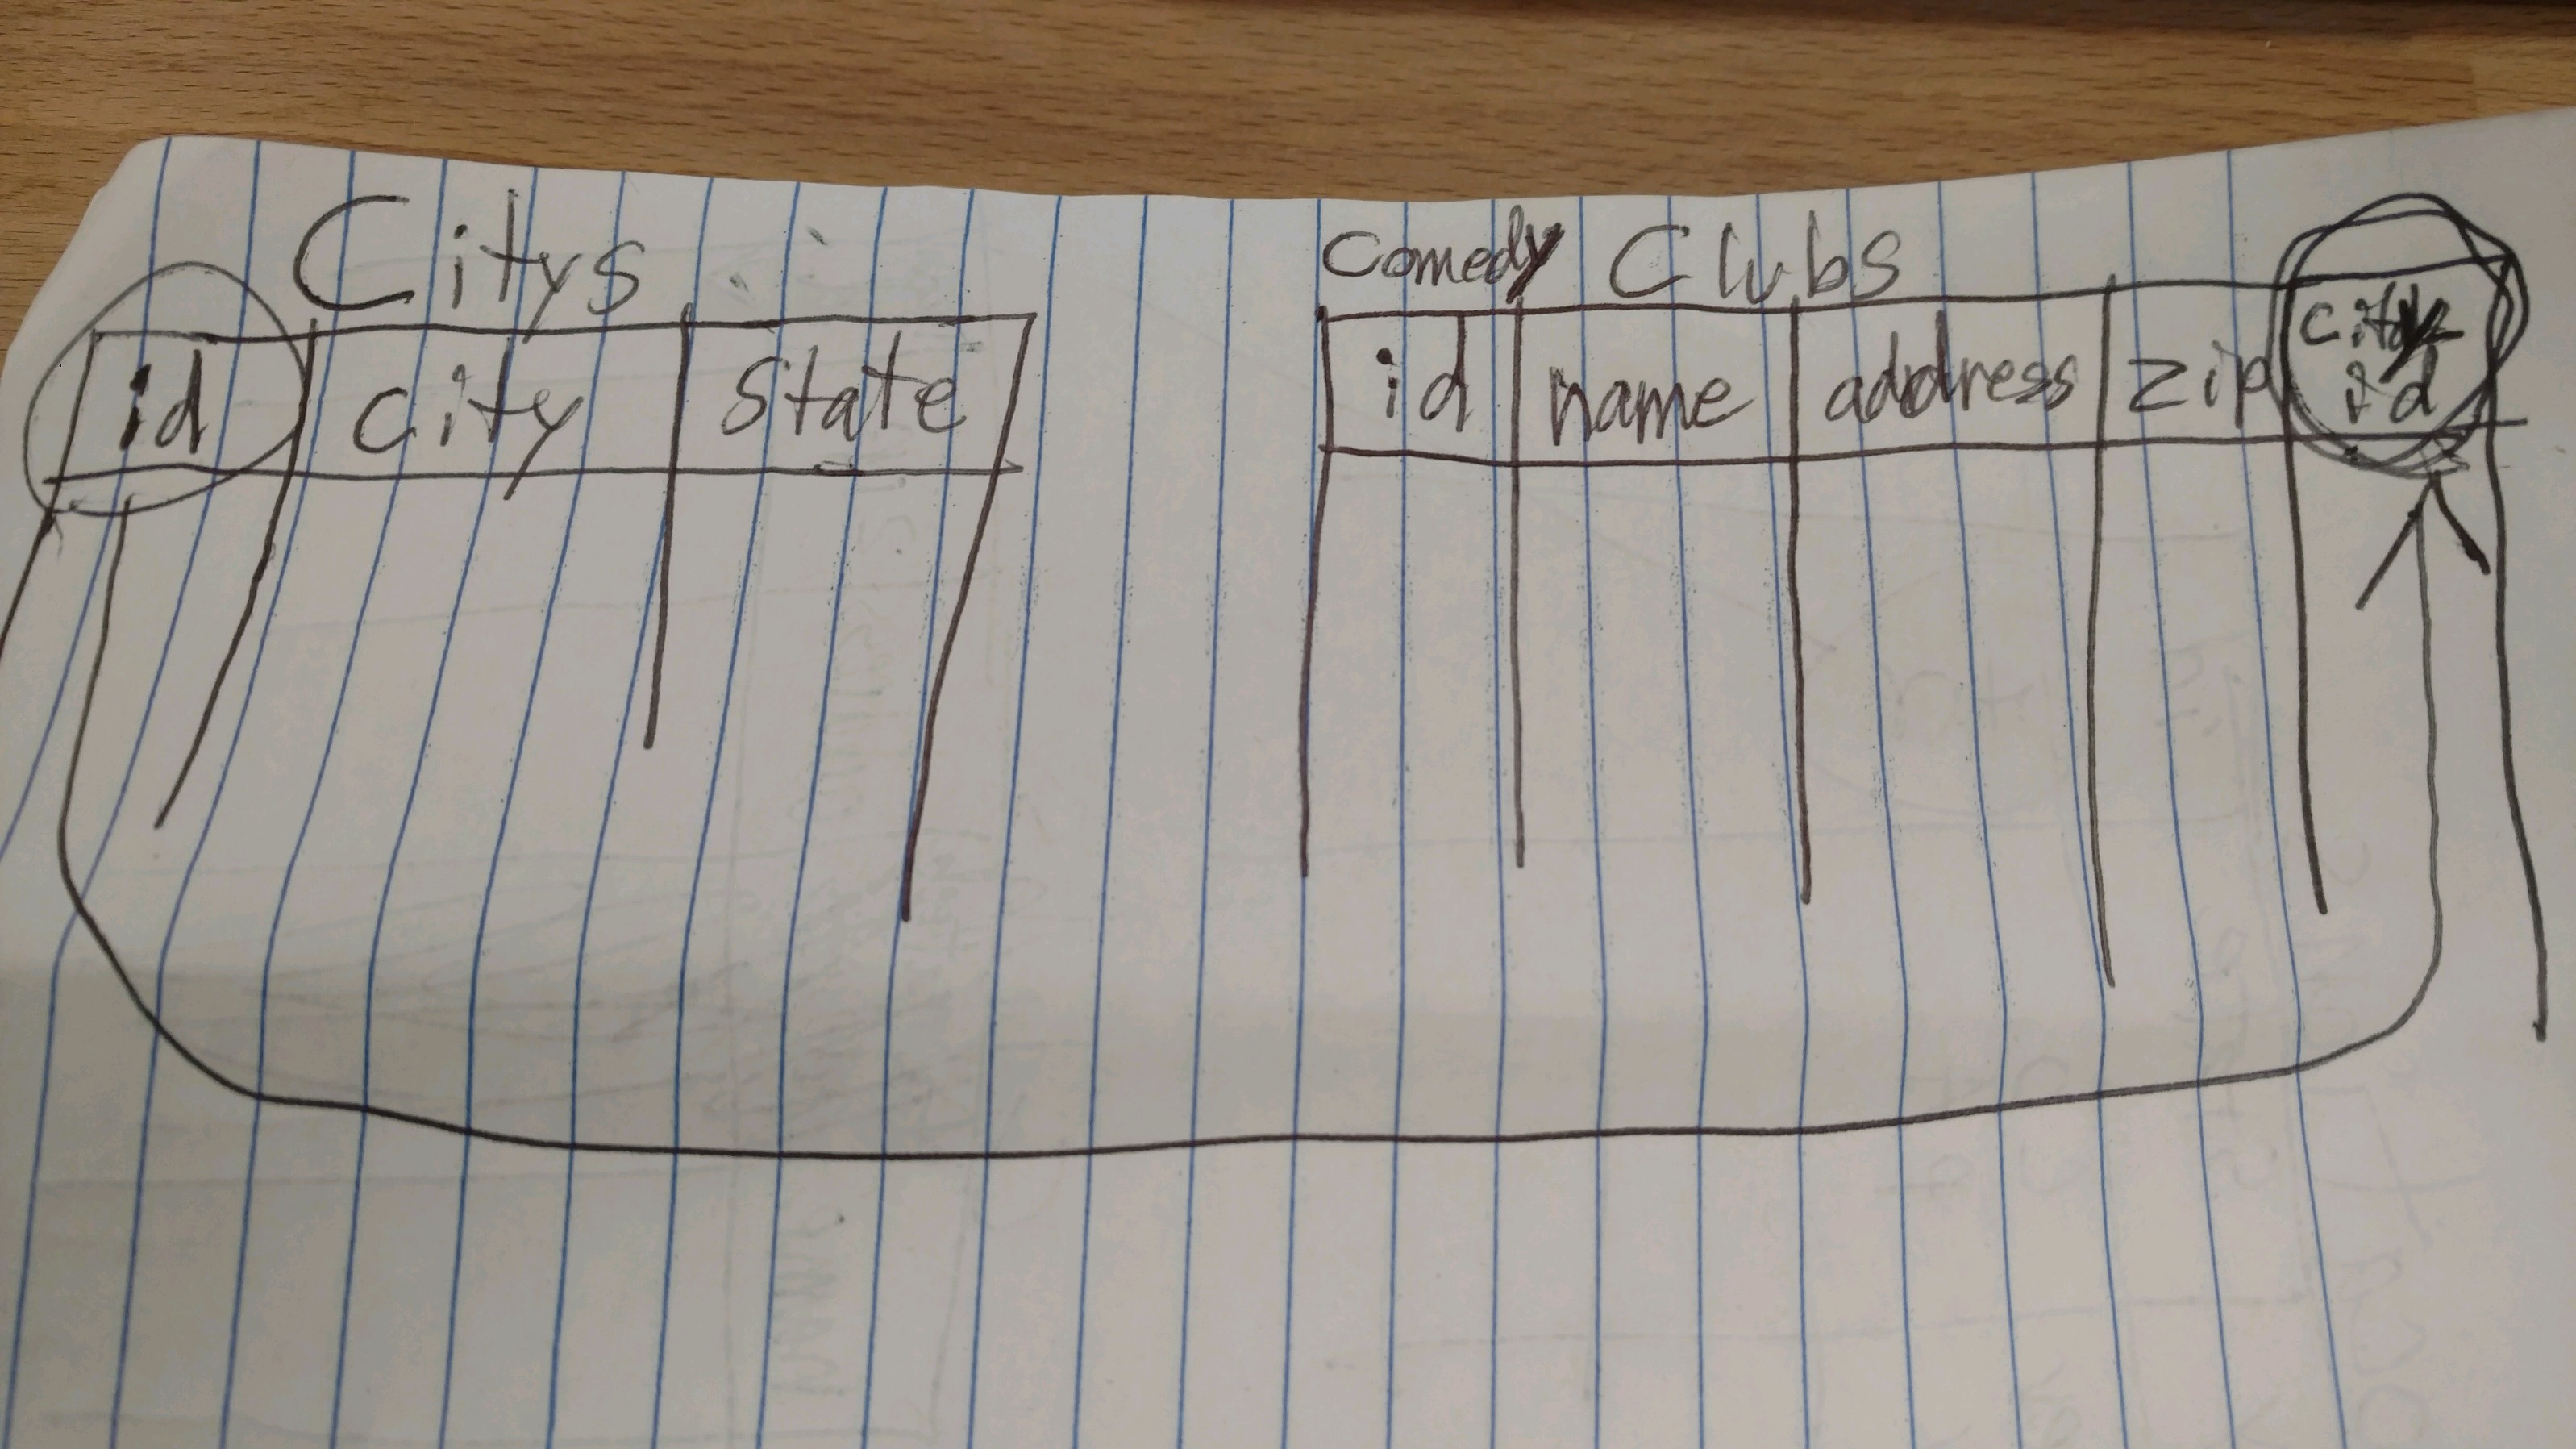 Citys
id city State
Comedy Clubs
id name address zip city id